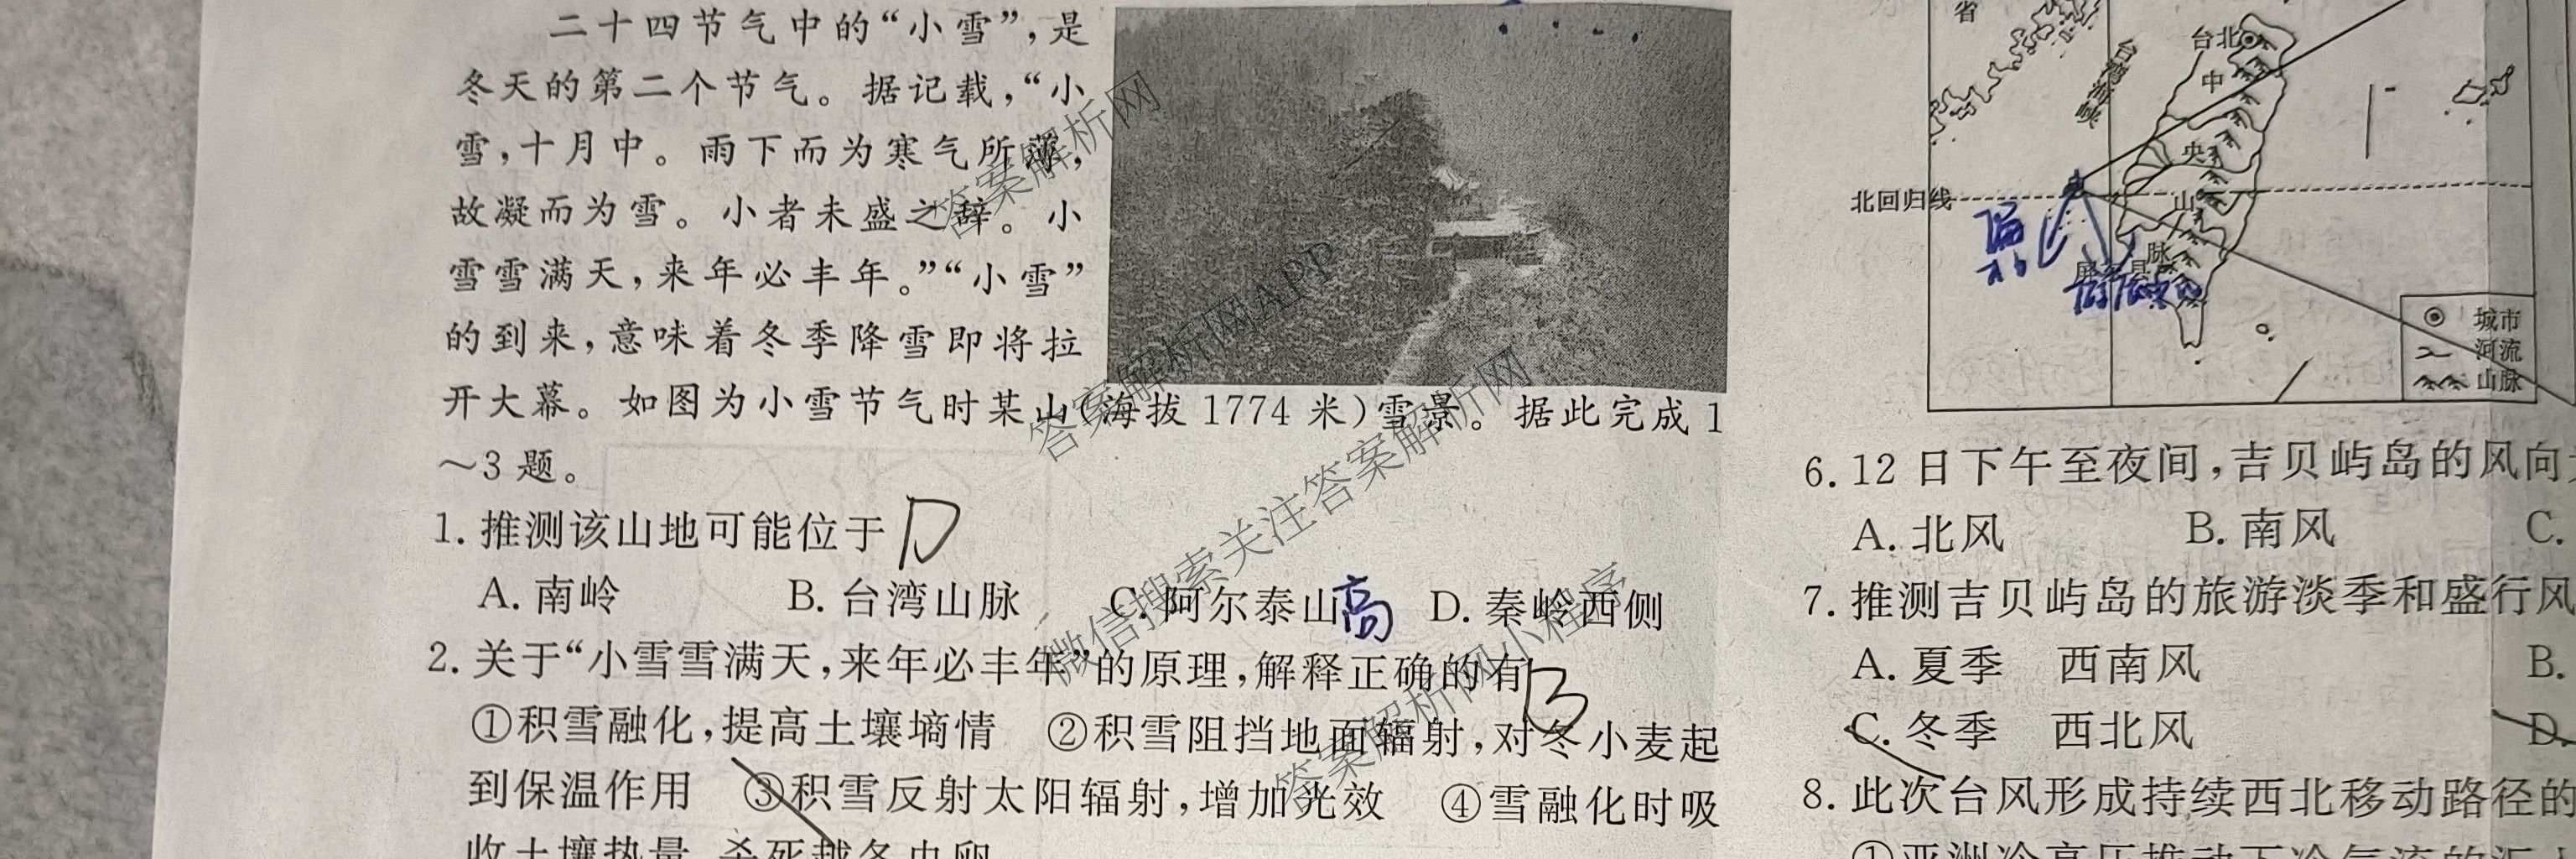 二十四节气中的“小雪”,是
冬天的第二个节气。据记载,“小
雪,十月中。雨下而为寒气所薄,
故凝而为雪。小者未盛之辞。小
雪雪满天,来年必丰年。”“小雪”
的到来,意味着冬季降雪即将拉
开大幕。如图为小雪节气时某山(海拔 1774 米)雪景。据此完成 1
～3 题。
1. 推测该山地可能位于 D
A. 南岭 B. 台湾山脉 C. 阿尔泰山 高 D. 秦岭西侧
2. 关于“小雪雪满天,来年必丰年”的原理,解释正确的有 B
①积雪融化,提高土壤墒情 ②积雪阻挡地面辐射,对冬小麦起
到保温作用 ③积雪反射太阳辐射,增加光效 ④雪融化时吸
收土壤热量,杀死越冬虫卵
省
台湾海峡
台北
中
央
山
脉
北回归线
屏东县
城市
河流
山脉
6. 12 日下午至夜间,吉贝屿岛的风向
A. 北风 B. 南风 C.
7. 推测吉贝屿岛的旅游淡季和盛行风
A. 夏季 西南风 B.
C. 冬季 西北风 D.
8. 此次台风形成持续西北移动路径的
①亚洲冷高压推动下冷气流的
答案解析网
答案解析网APP
微信搜索关注答案解析网
答案解析网小程序